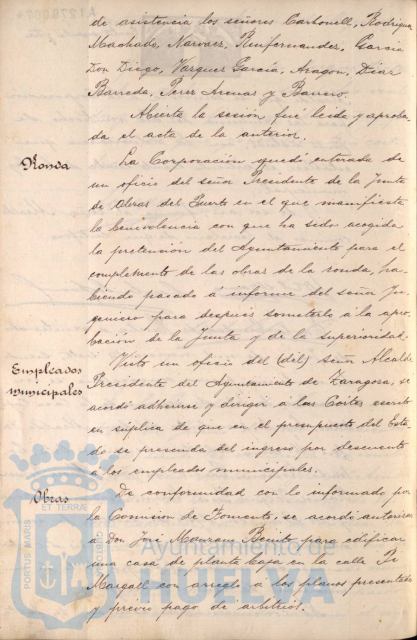 de asistencia los señores Carbonell, Rodriguez
Machado, Narvaez, Garcia
Don Diego, Vazquez Garcia, Aragon, Diaz
Barreda, Perez Arenas y Barrero.
Abierta la sesión fué leida y aproba-
da el acta de la anterior.
Ronda
La Corporación quedó enterada de
un oficio del señor Presidente de la Junta
de Obras del Puerto en el que manifiesta
la benevolencia con que ha sido acogida
la pretensión del Ayuntamiento para el
complemento de las obras de la ronda, ha-
biendo pasado á informe del señor In-
geniero para despues someterlo á la apro-
bación de la Junta y de la superioridad.
Empleados
municipales
Visto un oficio del (del) señor Alcalde
Presidente del Ayuntamiento de Zaragoza, se
acordó adherirse y dirigir á las Córtes escrito
en súplica de que en el presupuesto del Esta-
do se prescinda del ingreso por descuento
á los empleados municipales.
Obras
De conformidad con lo informado por
la Comision de Fomento, se acordó autorizar
á Don José Manzano Benito para edificar
una casa de planta baja en la calle Pi
Margall con arreglo á los planos presentados
y prévio pago de arbitrios.
PORTUS MARIS
ET TERRÆ
CUSTODIA
Ayuntamiento de
HUELVA